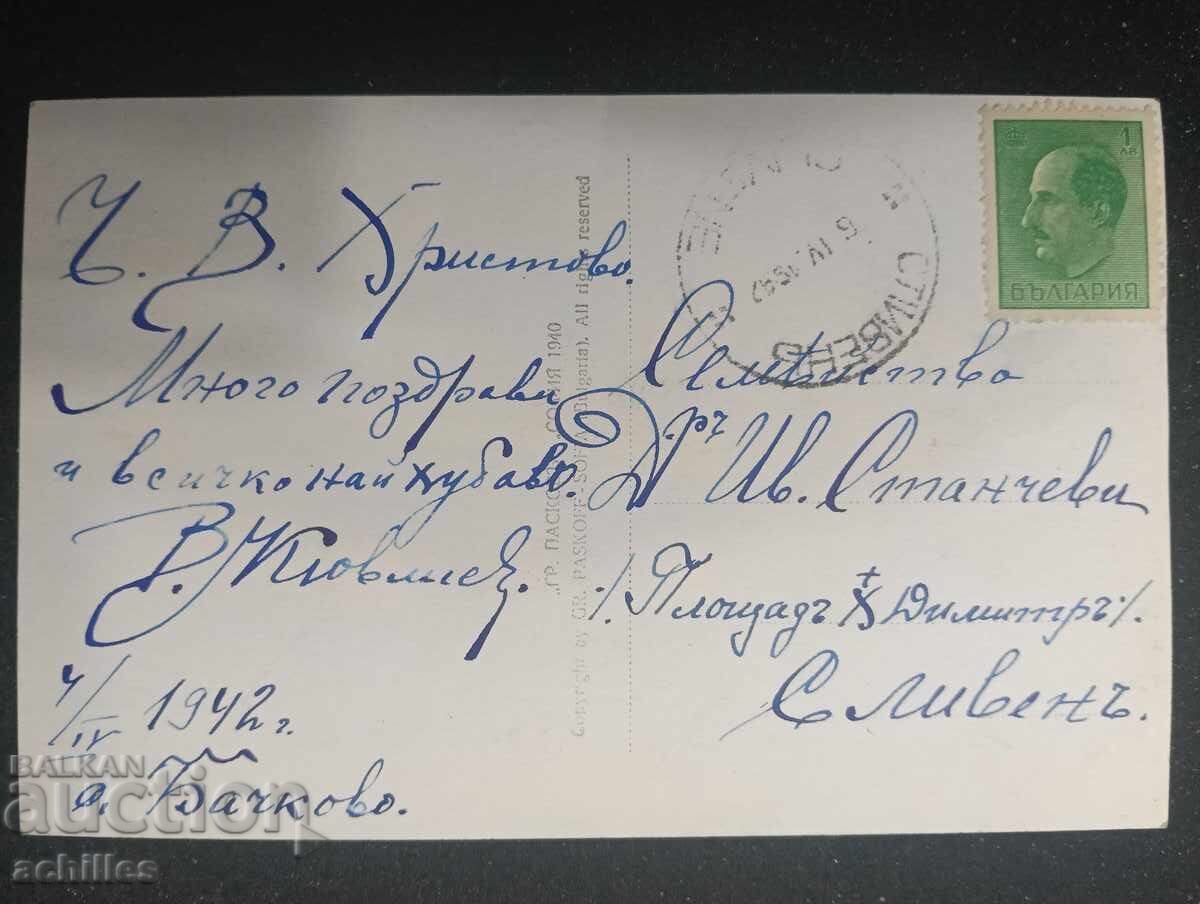 Ч. В. Христово.
Много поздрави
и всичко най хубаво.
4/IV 1942 г.
с. Бачково.
„ГР. ПАСКОВ"-СОФИЯ 1940
Copyright by GR. PASKOFF-SOFIA (Bulgaria). All rights reserved
СЛИВЕНЪ
6 IV. 1942
1 ЛВ
БЪЛГАРИЯ
Семѣйство
Д-ръ Ив. Станчеви
/Площадъ Х Димитръ/.
Сливенъ.
BALKAN
auction
achilles